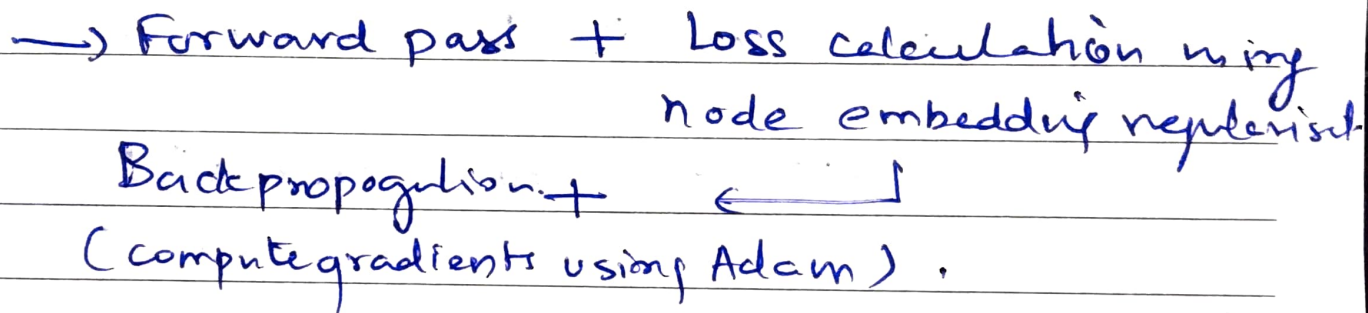 → Forward pass + Loss calculation using
node embedding regularisat
Backpropogation +
(compute gradients using Adam).